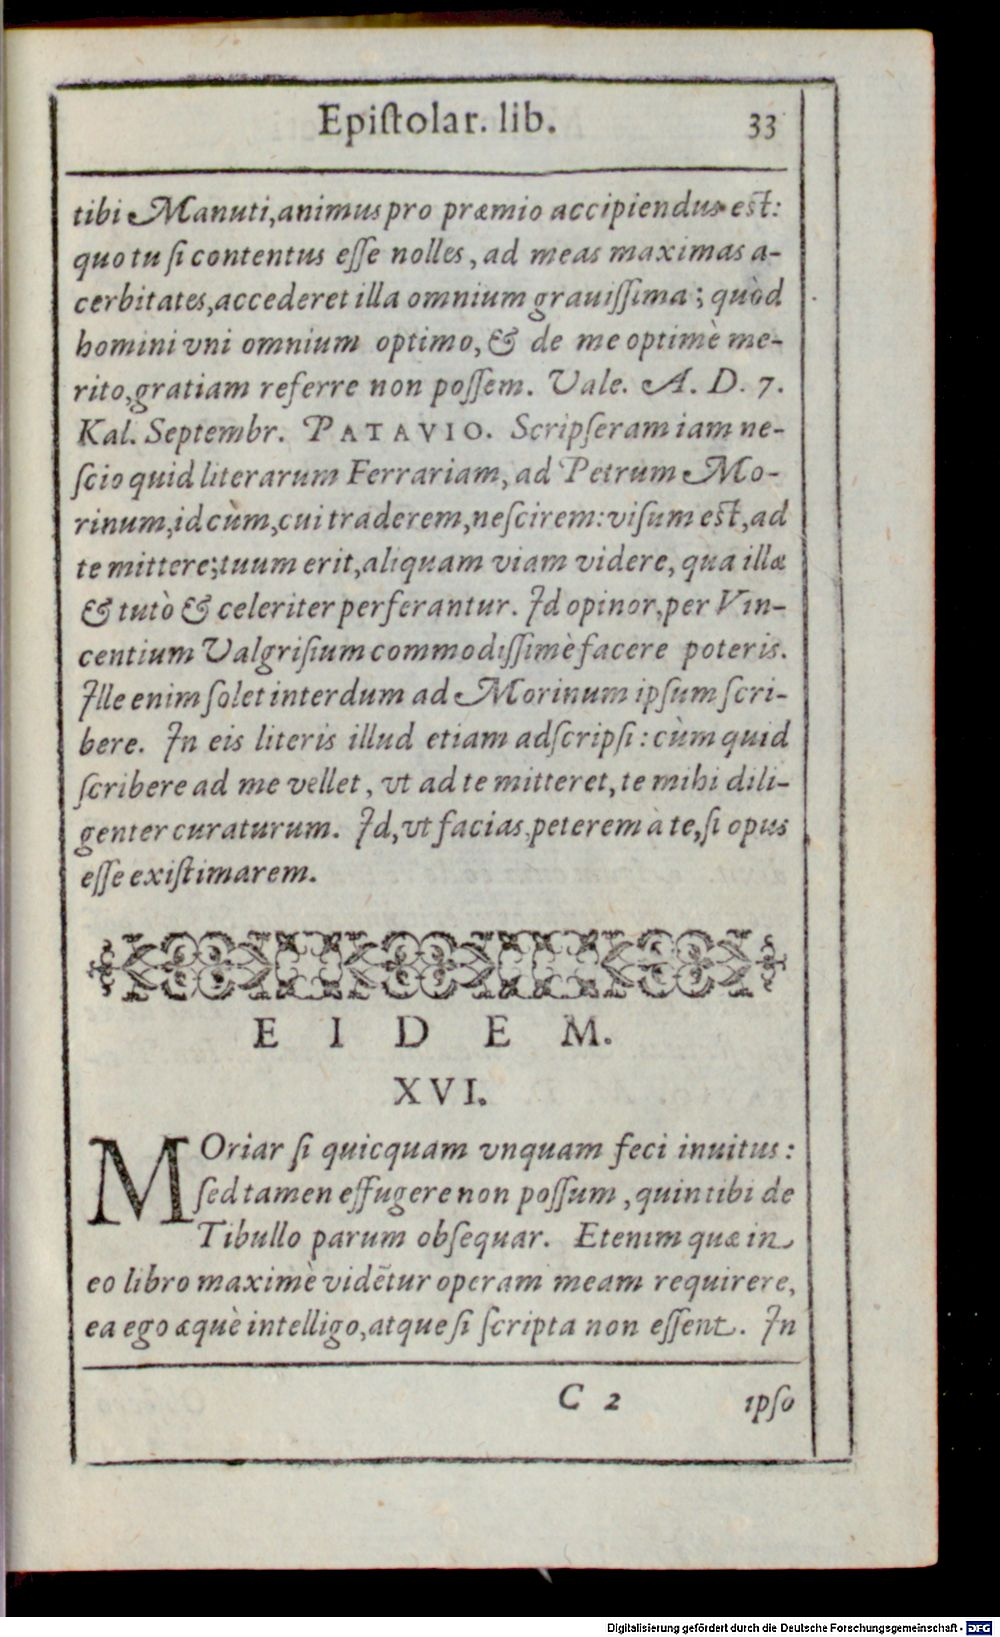 Epiſtolar. lib. 33
tibi Manuti, animus pro præmio accipiendus est:
quo tu ſi contentus eſſe nolles, ad meas maximas a-
cerbitates, accederet illa omnium grauiſſima; quòd
homini vni omnium optimo, & de me optimè me-
rito, gratiam referre non poſſem. Vale. A. D. 7.
Kal. Septembr. PATAVIO. Scripſeram iam ne-
ſcio quid literarum Ferrariam, ad Petrum Mo-
rinum, id cùm, cui traderem, neſcirem: viſum est, ad
te mittere; tuum erit, aliquam viam videre, qua illæ
& tutò & celeriter perferantur. Id opinor, per Vin-
centium Valgriſium commodiſſimè facere poteris.
Ille enim ſolet interdum ad Morinum ipſum ſcri-
bere. In eis literis illud etiam adſcripſi: cùm quid
ſcribere ad me vellet, vt ad te mitteret, te mihi dili-
genter curaturum. Id, vt facias, peterem à te, ſi opus
eſſe exiſtimarem.
EIDEM.
XVI.
MOriar ſi quicquam vnquam feci inuitus:
ſed tamen effugere non poſſum, quin tibi de
Tibullo parum obſequar. Etenim quæ in
eo libro maximè vidẽtur operam meam requirere,
ea ego æquè intelligo, atque ſi ſcripta non eſſent. In
C 2 ipſo
Digitalisierung gefördert durch die Deutsche Forschungsgemeinschaft - DFG